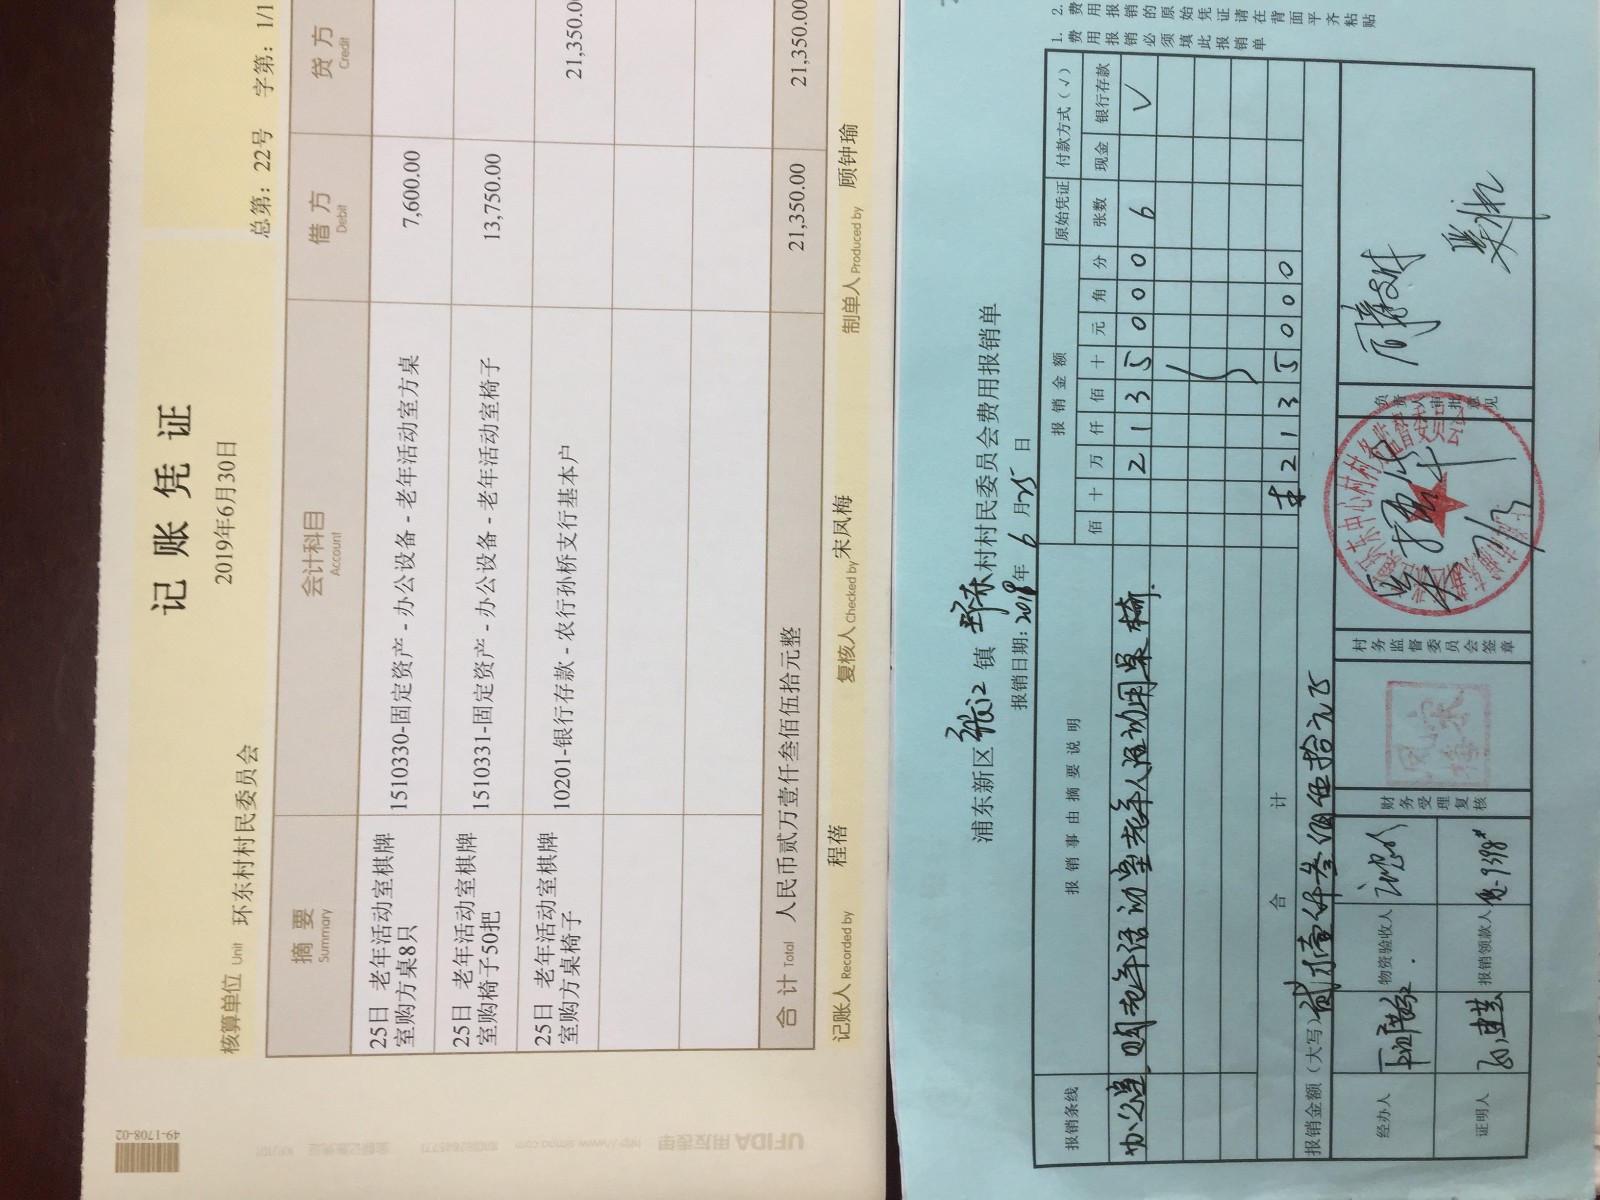 记账凭证
2019年6月30日
总第：22号 字第：1/1
核算单位 Unit 环东村村民委员会
摘要 Summary 会计科目 Account 借方 Debit 贷方 Credit
25日 老年活动室棋牌室购方桌8只 1510330-固定资产 - 办公设备 - 老年活动室方桌 7,600.00
25日 老年活动室棋牌室购椅子50把 1510331-固定资产 - 办公设备 - 老年活动室椅子 13,750.00
25日 老年活动室棋牌室购方桌椅子 10201-银行存款 - 农行孙桥支行基本户 21,350.00
合计 Total 人民币贰万壹仟叁佰伍拾元整 21,350.00 21,350.00
记账人 Recorded by 程蓓 复核人 Checked by 宋凤梅 制单人 Produced by 顾钟瑜
49-1708-02
UFIDA 用友表单
浦东新区张江镇环东村村民委员会费用报销单
报销日期：2018年6月25日
报销条线 报销事由摘要说明 报销金额 原始凭证张数 付款方式（√）
佰 十 万 仟 佰 十 元 角 分 现金 银行存款
办公室 购老年活动室老年人活动用桌椅. 2 1 3 5 0 0 0 6 √
合计 ¥ 2 1 3 5 0 0 0
报销金额（大写）贰万壹仟叁佰伍拾元正
经办人 物资验收人 财务受理复核 村务监督委员会签章 负责人审批意见
证明人 报销领款人
1. 费用报销必须填此报销单
2. 费用报销的原始凭证请在背面平齐粘贴